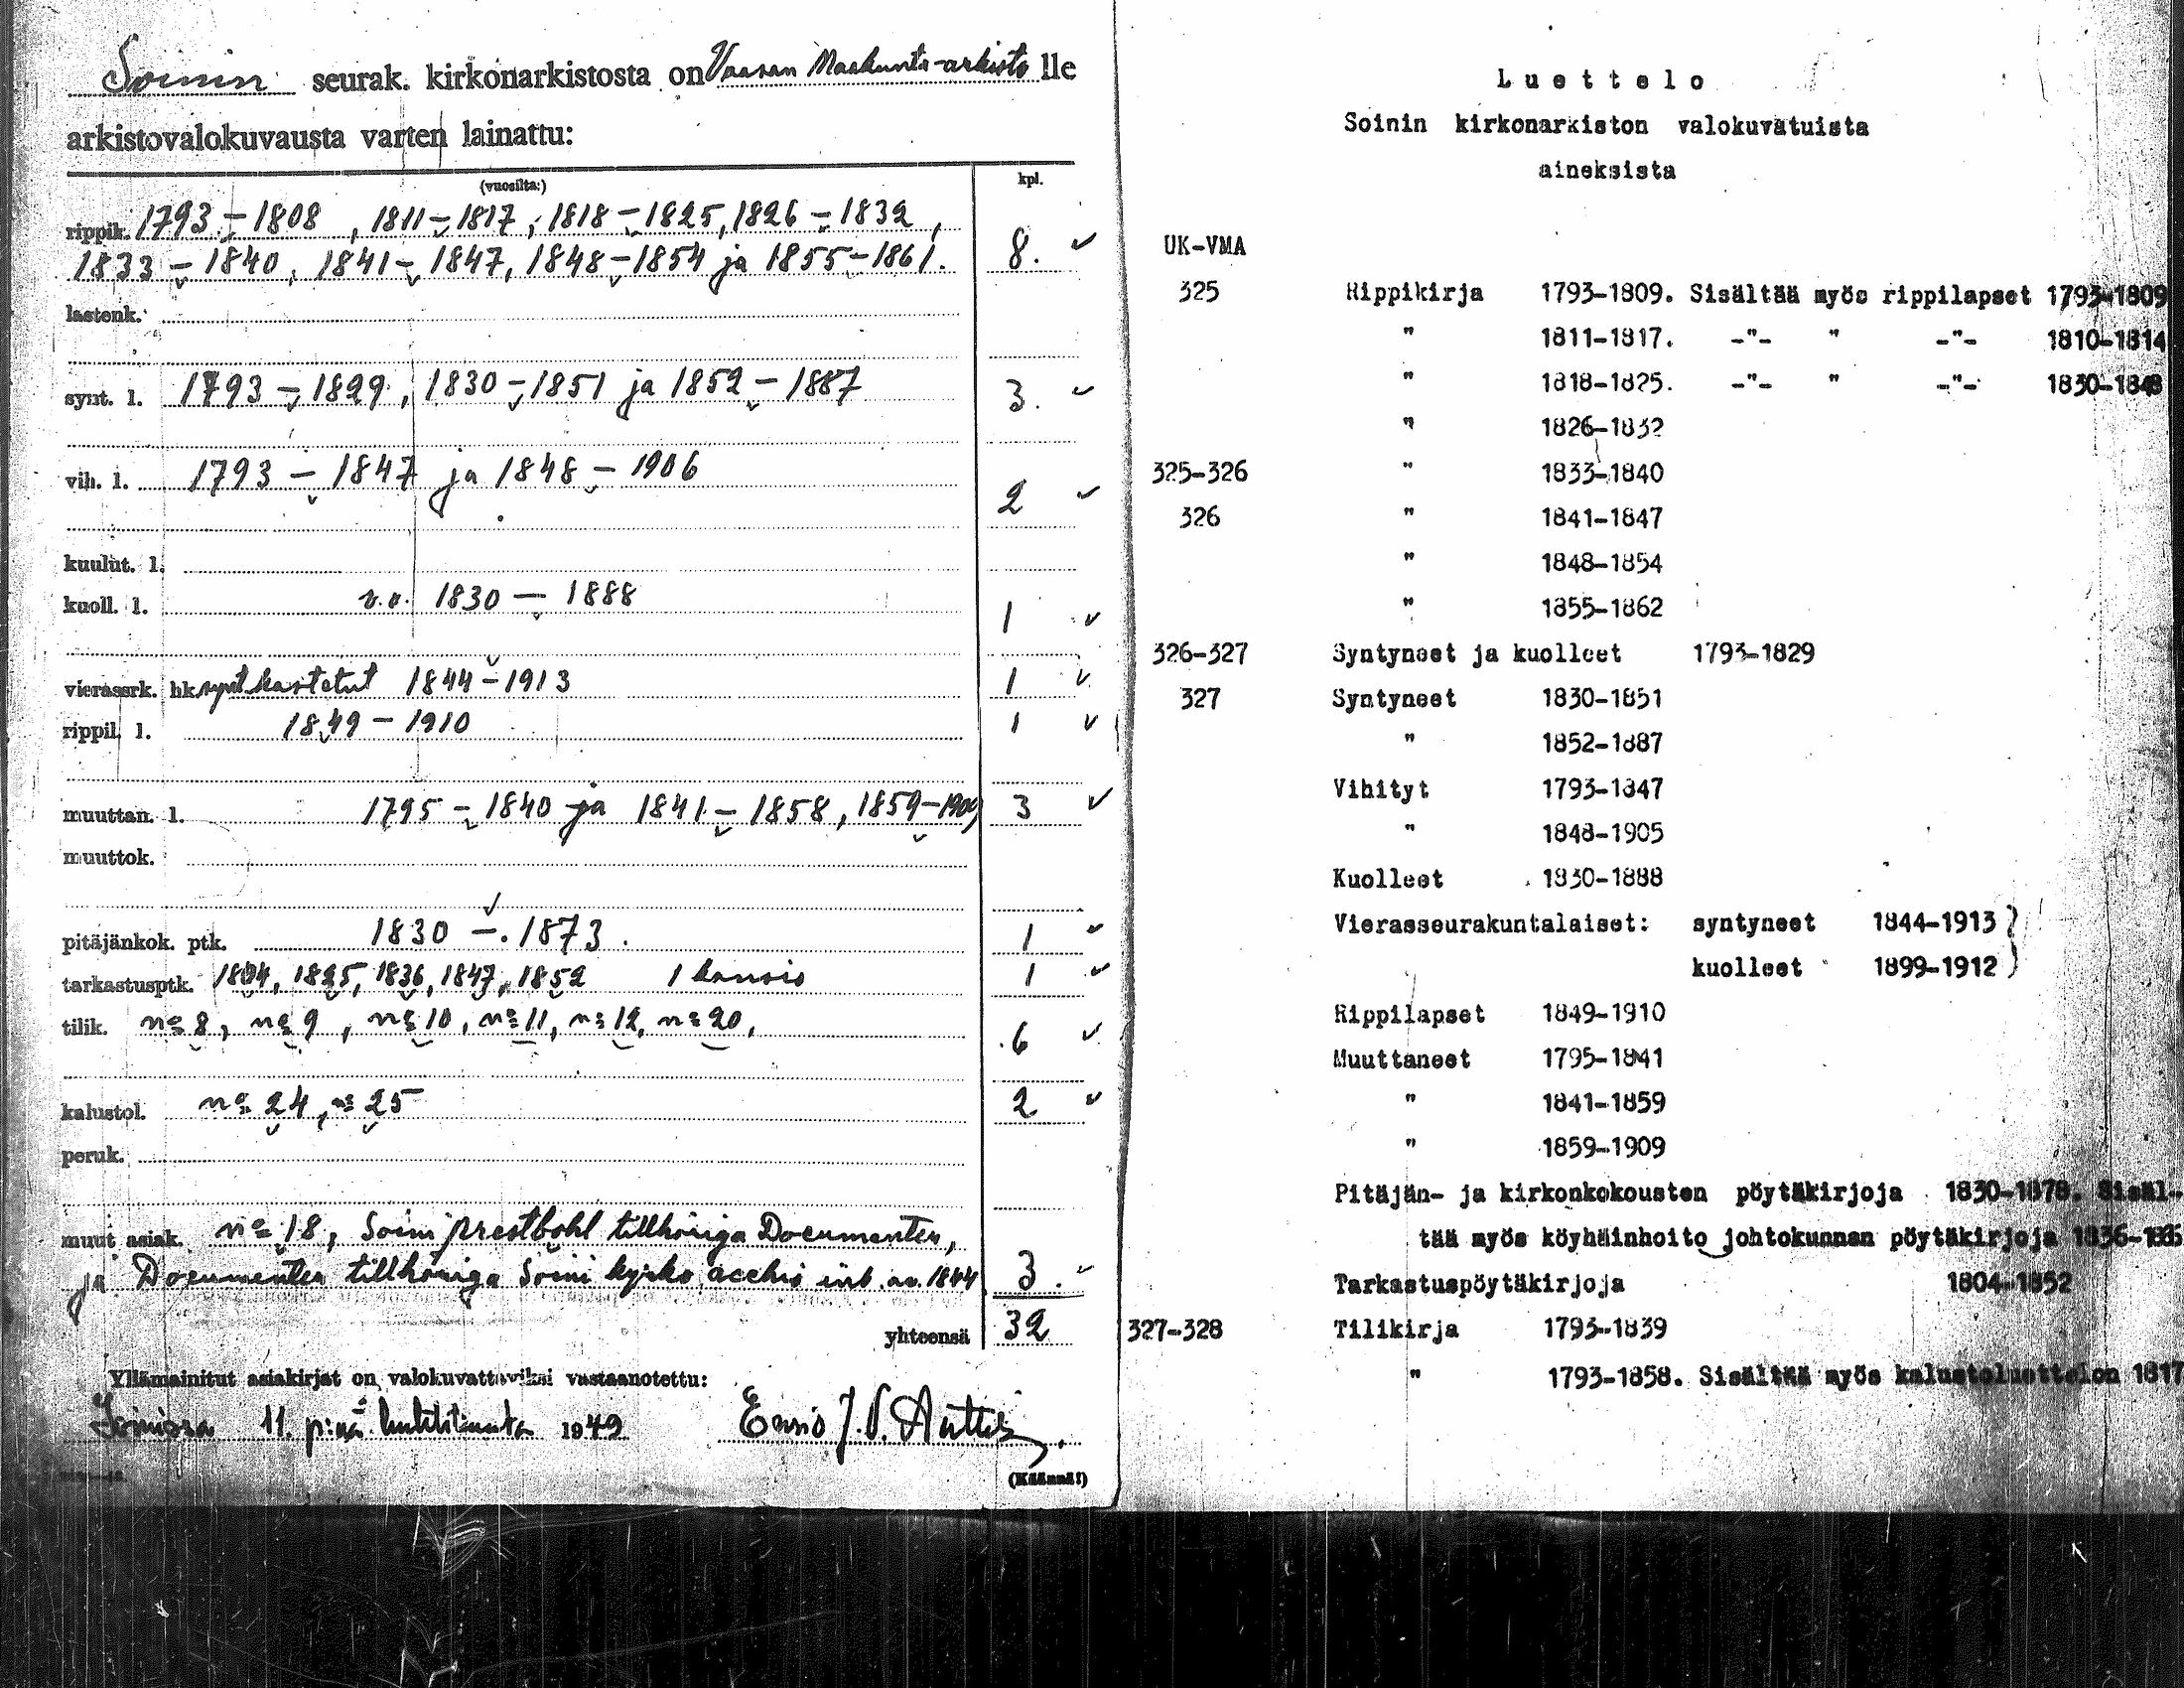 Soinin seurak. kirkonarkistosta on Vaasan Maakunta-arkisto lle
arkistovalokuvausta varten lainattu:
(vuosilta:) kpl.
rippik. 1793 – 1808 , 1811 – 1817 , 1818 – 1825, 1826 – 1832 ,
1833 – 1840 , 1841 – 1847, 1848 – 1854 ja 1855 – 1861. 8. ✓
lastenk.
synt. l. 1793 – 1829 , 1830 – 1851 ja 1852 – 1887 3. ✓
vih. l. 1793 – 1847 ja 1848 – 1906 2 ✓
kuulut. l.
kuoll. l. v.v. 1830 – 1888 1 ✓
vierassrk. hk. synt. kastetut 1844 – 1913 1 ✓
rippil. l. 1849 – 1910 1 ✓
muuttan. l. 1795 – 1840 ja 1841 – 1858, 1859 – 1909 3 ✓
muuttok.
pitäjänkok. ptk. 1830 – 1873. 1 ✓
tarkastusptk. 1804, 1825, 1836, 1847, 1852 1 kansio 1 ✓
tilik. nº 8, nº 9, nº 10, nº 11, nº 12, nº 20, 6 ✓
kalustol. nº 24, nº 25 2 ✓
peruk.
muut asiak. nº 18, Soini prestbohl tillhöriga Documenter,
ja Documenter tillhöriga Soini kyrko 1844 3. ✓
yhteensä 32
Yllämainitut asiakirjat on valokuvattaviksi vastaanotettu:
Soinissa 11. p:nä huhtikuuta 1949
(Käännä!)
Luettelo
Soinin kirkonarkiston valokuvatuista
aineksista
UK-VMA
325 Rippikirja 1793-1809. Sisältää myös rippilapset 1793-1809
" 1811-1817. -"- " -"- 1810-1814
" 1818-1825. -"- " -"- 1830-1848
" 1826-1832
325-326 " 1833-1840
326 " 1841-1847
" 1848-1854
" 1855-1862
326-327 Syntyneet ja kuolleet 1793-1829
327 Syntyneet 1830-1851
" 1852-1887
Vihityt 1793-1847
" 1848-1905
Kuolleet 1830-1888
Vierasseurakuntalaiset: syntyneet 1844-1913 )
kuolleet 1899-1912 )
Rippilapset 1849-1910
Muuttaneet 1795-1841
" 1841-1859
" 1859-1909
Pitäjän- ja kirkonkokousten pöytäkirjoja 1830-1878. Sisäl-
tää myös köyhäinhoito johtokunnan pöytäkirjoja
Tarkastuspöytäkirjoja 1804-1852
327-328 Tilikirja 1793-1839
" 1793-1858. Sisältää myös kalustoluettelon 1817